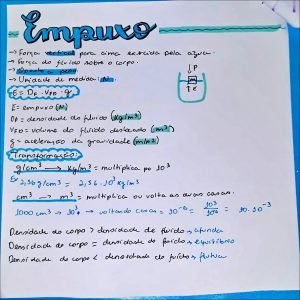 Empuxo
→ Força vertical para cima exercida pela água.
→ Força do fluido sobre o corpo.
→ peso
→ Unidade de medida: N
E = DF . VFD . g
E = empuxo (N)
DF = densidade do fluido (kg/m³)
VFD = volume do fluido deslocado (m³)
g = aceleração da gravidade (m/m²)
Transformação:
g/cm³ → kg/m³ = multiplica por 10³
Ex: 2,56 g/cm³ = 2,56 . 10³ kg/m³
cm³ → m³ = multiplica ou volta as casas.
1000 cm³ → 10³ → voltando casas = 10⁻⁶ = = 10 . 10⁻³
Densidade do corpo > densidade do fluido → afunda
Densidade do corpo = densidade do fluido → equilíbrio
Densidade do corpo < densidade do fluido → flutua
P
E